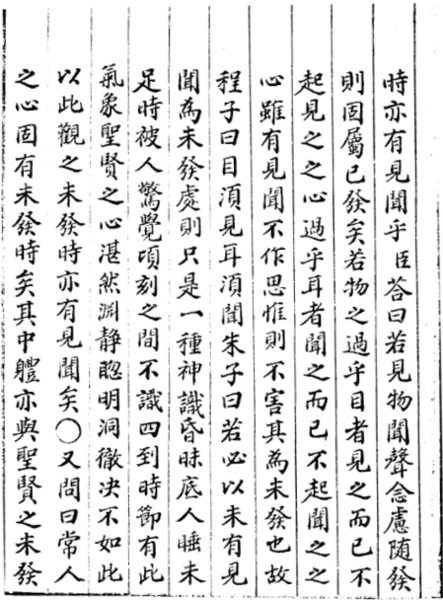 時亦有見聞乎臣答曰若見物聞聲念慮隨發
則固屬已發矣若物之過乎目者見之而已不
起見之之心過乎耳者聞之而已不起聞之之
心雖有見聞不作思惟則不害其為未發也故
程子曰目須見耳須聞朱子曰若必以未有見
聞為未發處則只是一種神識昏昧底人睡未
足時被人驚覺頃刻之間不識四到時節有此
氣象聖賢之心湛然淵静聦明洞徹决不如此
以此觀之未發時亦有見聞矣○又問曰常人
之心固有未發時矣其中軆亦與聖賢之未發